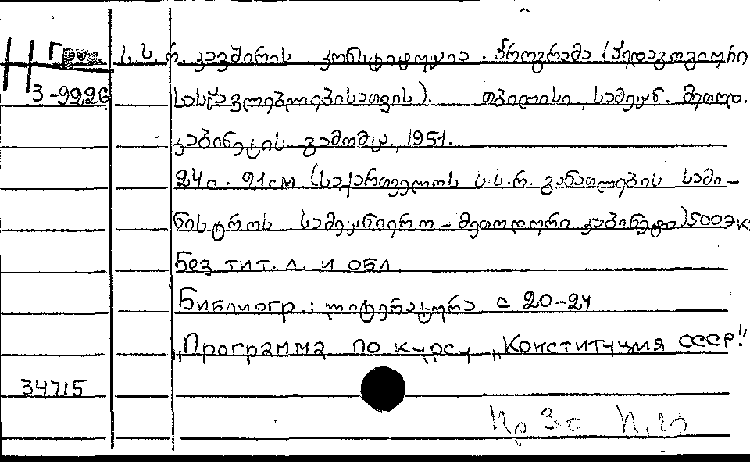 Груз. ს. ს. რ. კავშირის კონსტიტუცია. პროგრამა (პედაგოგიური
3-9926 სასწავლებლებისათვის). თბილისი, სამეცნ. მეთოდ.
კაბინეტის გამომც., 1951.
24 с. 21 см (საქართველოს ს.ს.რ. განათლების სამი-
ნისტროს სამეცნიერო-მეთოდური კაბინეტი) 500 экз
Без тит. л. и обл.
Библиогр.: ლიტერატურა с 20-24
„Программа по курсу „Конституция СССР."
34715